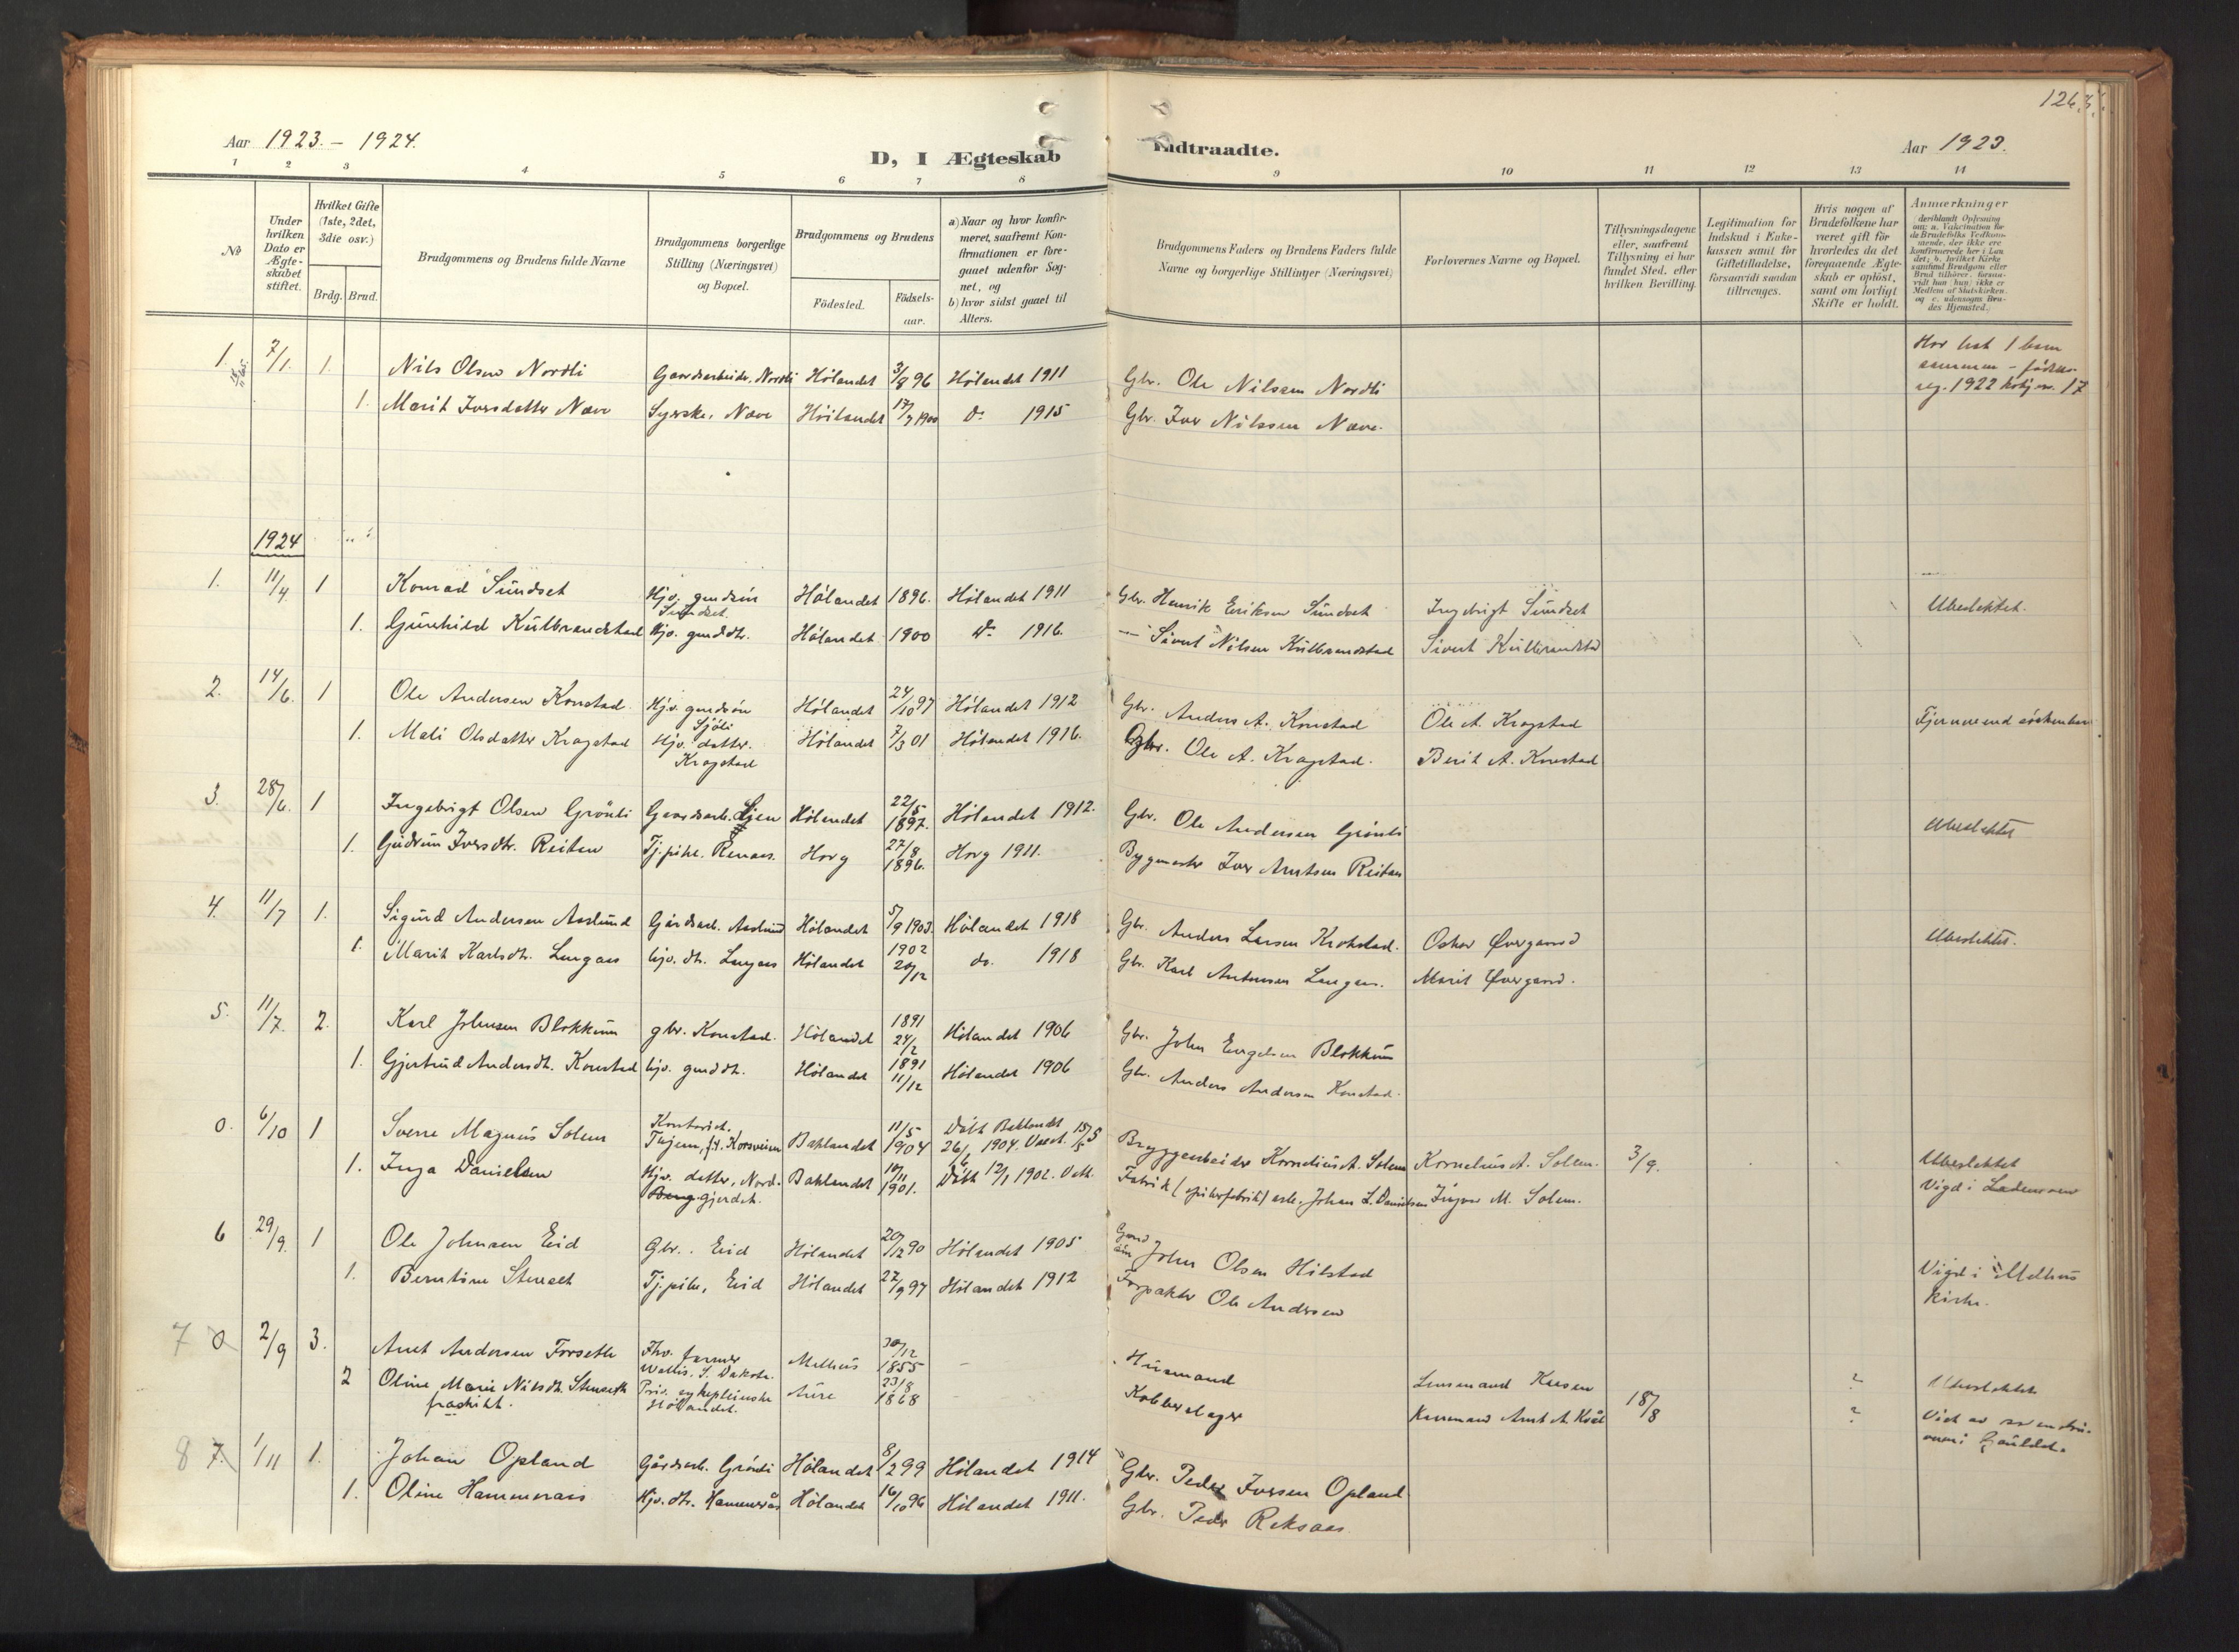 126.
Aar 1923. – 1924.
D, I Ægteskab Indtraadte.
Aar 1923.
1 2 3 4 5 6 7 8 9 10 11 12 13 14
No
Under hvilken Dato er Ægteskabet stiftet.
Hvilket Gifte (1ste, 2det, 3die osv.)
Brdg. Brud.
Brudgommens og Brudens fulde Navne
Brudgommens borgerlige Stilling (Næringsvei) og Bopæl.
Brudgommens og Brudens
Födested.
Födselsaar.
a) Naar og hvor konfirmeret, saafremt Konfirmationen er foregaaet udenfor Sognet, og
b) hvor sidst gaaet til Alters.
Brudgommens Faders og Brudens Faders fulde Navne og borgerlige Stillinger (Næringsvei)
Forlovernes Navne og Bopæl.
Tillysningsdagene eller, saafremt Tillysning ei har fundet Sted, efter hvilken Bevilling.
Legitimation for Indskud i Enkekassen samt for Giftetilladelse, forsaavidt saadan tiltrænges.
Hvis nogen af Brudefolkene har været gift för hvorledes da det foregaaende Ægteskab er oplöst, samt om lovligt Skifte er holdt.
Anmærkninger (deriblandt Oplysning om: a. Vakcination for de Brudefolks Vedkommende, der ikke ere konfirmerede her i Landet; b. hvilket Kirkesamfund Brudgom eller Brud tilhörer, forsaavidt han (hun) ikke er Medlem af Statskirken. og c. udensogns Brudes Hjemsted.)
1. 7/1. 1. Nils Olsen Nordli Gaardsarbeider, Nordli Hølandet 3/8 96 Hølandet 1911 Gbr. Ole Nilssen Nordli Har hat 1 barn sammen – føds. reg. 1922 kvkj nr. 17
1. Marit Iversdatter Næve Syerske, Næve Høilandet 17/7 1900 do 1915 Gbr. Iver Nilssen Næve.
1924
1. 11/4. 1 Konrad Sundset Hjv. gmdsøn Sundset. Hølandet 1896. Hølandet 1911 Gbr. Henrik Eriksen Sundset Ingebrigt Sundset Ubeslektet.
1. Gunhild Kulbrandstad Hjv. gmddtr. Hølandet 1900 do 1916. — Sivert Nilsen Kulbrandstad Sivert Kulbrandstad
2. 14/6. 1 Ole Andersen Konstad. Hjv. gmdsøn Sjøli Hølandet 24/10 97 Hølandet 1912 Gbr. Anders A. Konstad Ole A. Kragstad
1. Mali Olsdatter Kragstad Hjv. datter. Kragstad Hølandet 7/3 01 Hølandet 1916. Gbr. Ole A. Kragstad. Berit A. Konstad
3. 28/6. 1 Ingebrigt Olsen Grønli Gaardsarb. Hølandet 22/5 1897. Hølandet 1912. Gbr. Ole Andersen Grønli Ubeslektet
1. Gudrun Iversdtr. Reitan Tj.pike. Horg 27/8 1896. Horg 1911. Bygmester Iver Arntsen Reitan
4. 11/7 1. Sigurd Andersen Aaslund Gårdsarb. Aaslund Hølandet 5/9 1903. Hølandet 1918 Gbr. Anders Larsen Krokstad. Oskar Øvergaard Ubeslektet.
1. Marit Karlsdtr. Langaas hjv. dtr. Langaas Hølandet 1902 20/12 do. 1918 Gbr. Karl Antonsen Langaas. Marit Øvergaard.
5. 11/7. 2. Karl Johnsen Blokkum gbr. Konstad. Hølandet 1891 24/2 Hølandet 1906 Gbr. John Engelsen Blokkum
1. Gjertrud Andersdtr. Konstad hjv. gmddtr. Hølandet 1891 11/12 Hølandet 1906 Gbr. Anders Andersen Konstad.
0. 6/10 1 Sverre Magnus Solem Kontorist. Baklandet 11/5 1904 Døbt Baklandet 26/6 1904. Bryggearbeider Kornelius A. Solem Kornelius A. Solem. 3/9. Ubeslektet
1. Inga Danielsen Hjv. datter, Nord-Berg gjerdet. Baklandet 10/11 1901. Døbt 12/1 1902. Fabrik (spikerfabrik) arb. Johan L. Danielsen Ingvar M. Solem. Vigd i Lademoen
6 29/9. 1 Ole Johnsen Eid Gbr. Eid Hølandet 20/12 90 Hølandet 1905 Gmd søn John Olsen Hilstad
1. Berntine Stenset Tj.pike, Eid Hølandet 27/9 97 Hølandet 1912 Forpakter Ole Andersen Vigd i Melhus kirke.
7 0 2/9 3. Arnt Andersen Forseth Fhv. farmer Wallis. S. Dakota. Melhus 30/12 1855 – Husmand Lensmand Kuesen ? Ubeslektet
2 Oline Marie Nilsdtr. Stenseth fraskilt. Priv. sykepleierske Hølandet. Aure 23/8 1868 – Kobberslager Arnt A. Kvål 18/8 ? Viet av sorenskriveren i Gauldal.
8 7. 1/11 1. Johan Opland Gårdsarb. Grønli Hølandet 8/2 99 Hølandet 1914 Gbr. Peder Iversen Opland
1. Oline Hammeraas Hjv. dtr. Hammerås Hølandet 16/10 96 Hølandet 1911. Gbr. Peder Reksaas